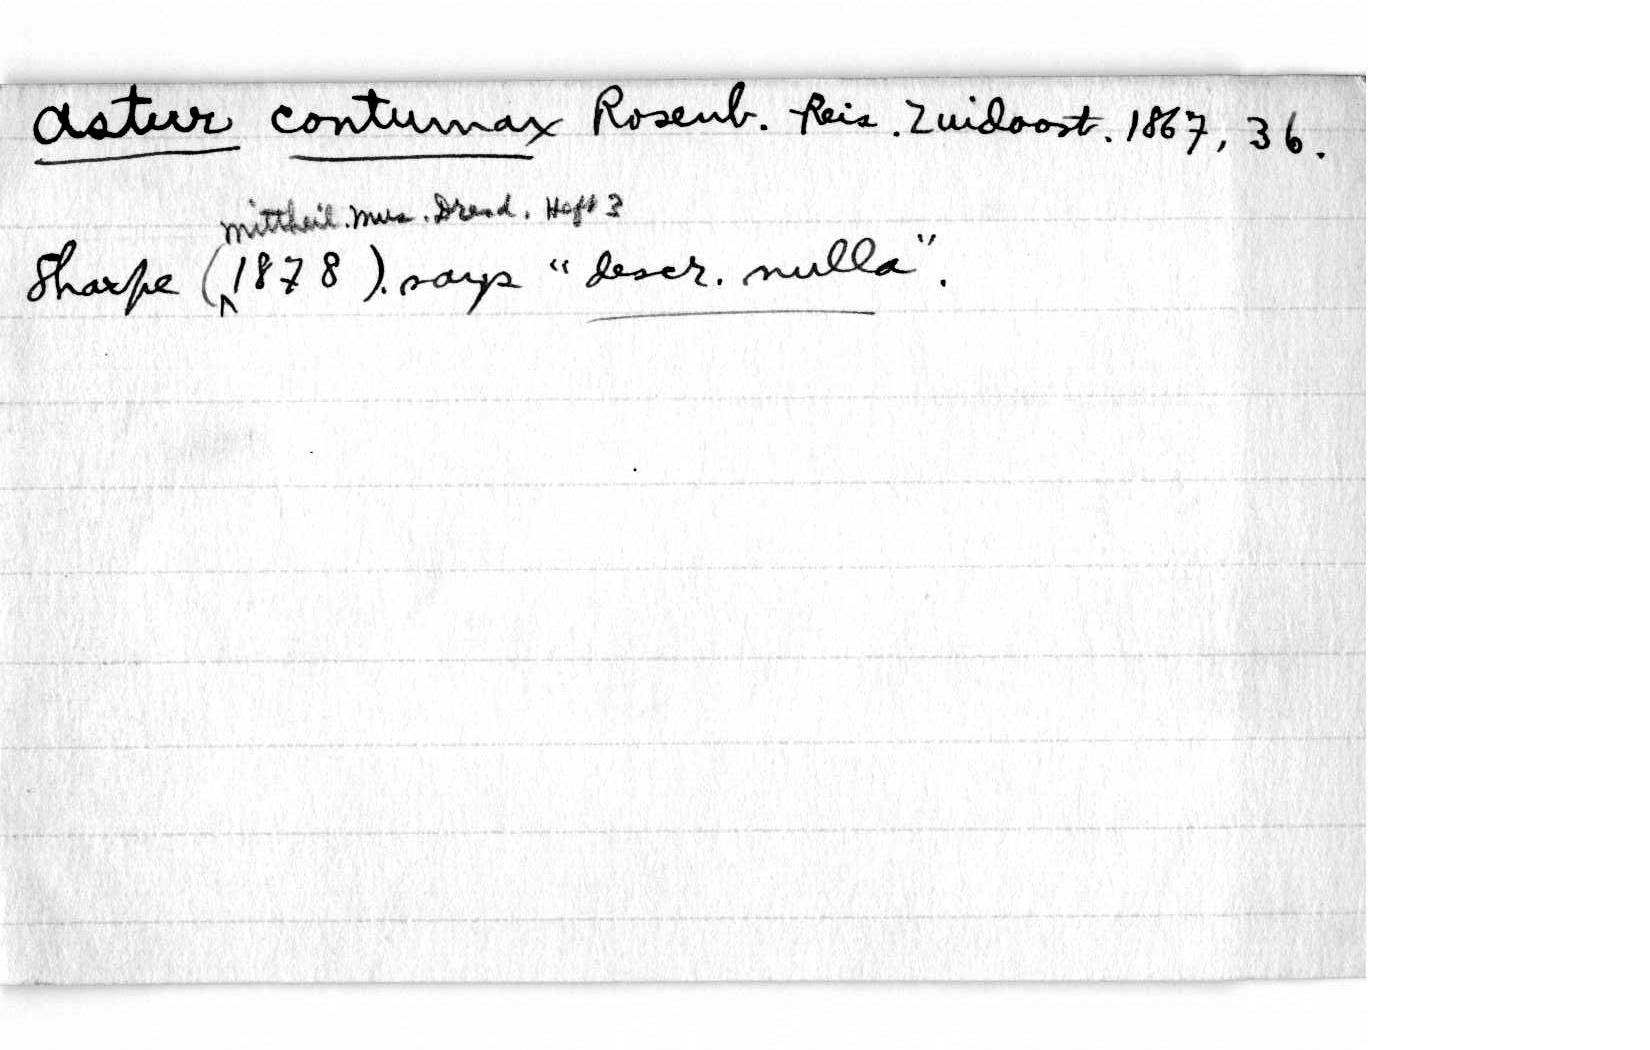 Astur contumax Rosenb. Reis. Zuidoost. 1867, 36.
Mittheil. Mus. Dresd. Heft 3
Sharpe (1878). says "descr. nulla".